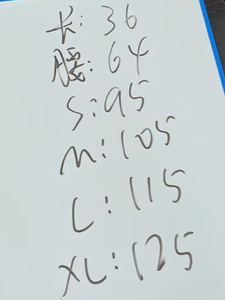 长:36
腰:64
S:95
M:105
L:115
XL:125